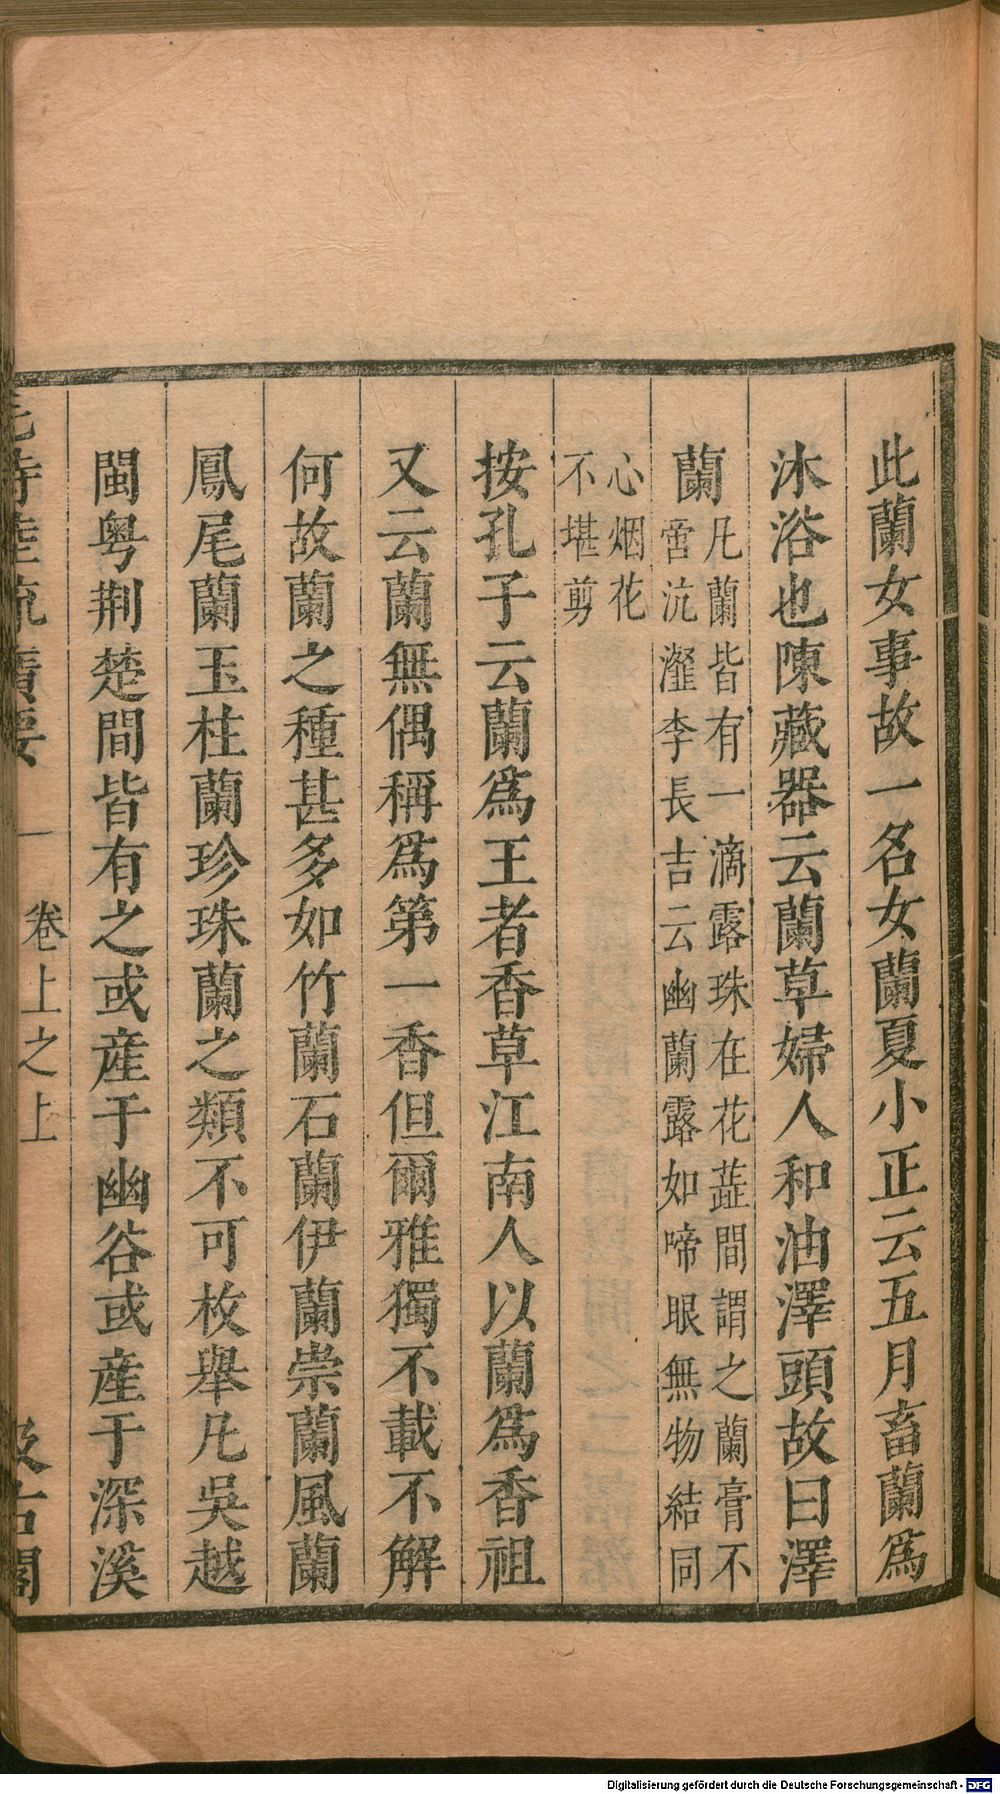 此蘭女事故一名女蘭夏小正云五月畜蘭爲
沐浴也陳藏器云蘭草婦人和油澤頭故曰澤
蘭
凡蘭皆有一滴露珠在花蕋間謂之蘭膏不
啻沆瀣李長吉云幽蘭露如啼眼無物結同
心烟花
不堪剪
按孔子云蘭爲王者香草江南人以蘭爲香祖
又云蘭無偶稱爲第一香但爾雅獨不載不解
何故蘭之種甚多如竹蘭石蘭伊蘭崇蘭風蘭
鳳尾蘭玉柱蘭珍珠蘭之類不可枚舉凡吳越
閩粤荆楚間皆有之或産于幽谷或産于深溪
毛詩陸疏廣要 卷上之上 汲古閣
Digitalisierung gefördert durch die Deutsche Forschungsgemeinschaft - DFG